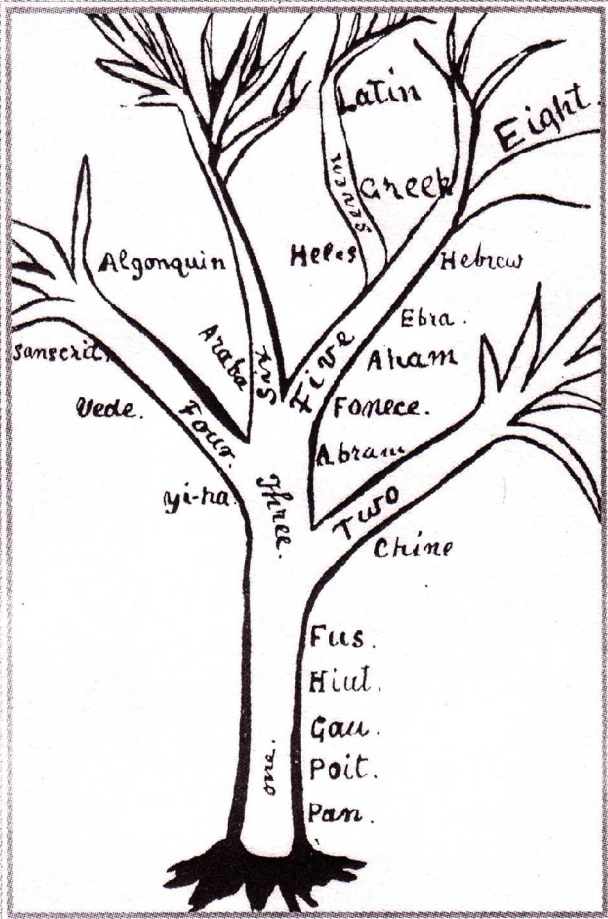 Latin
Eight.
seven
Greek
Algonquin
Heles
Hebrew
Araba
six
Five
Ebra.
Sanscrit,
Aham
Vede.
Four.
Fonece.
Abram
yi-ha.
Three.
Two
Chine
Fus.
Hiut.
Gau.
one.
Poit.
Pan.